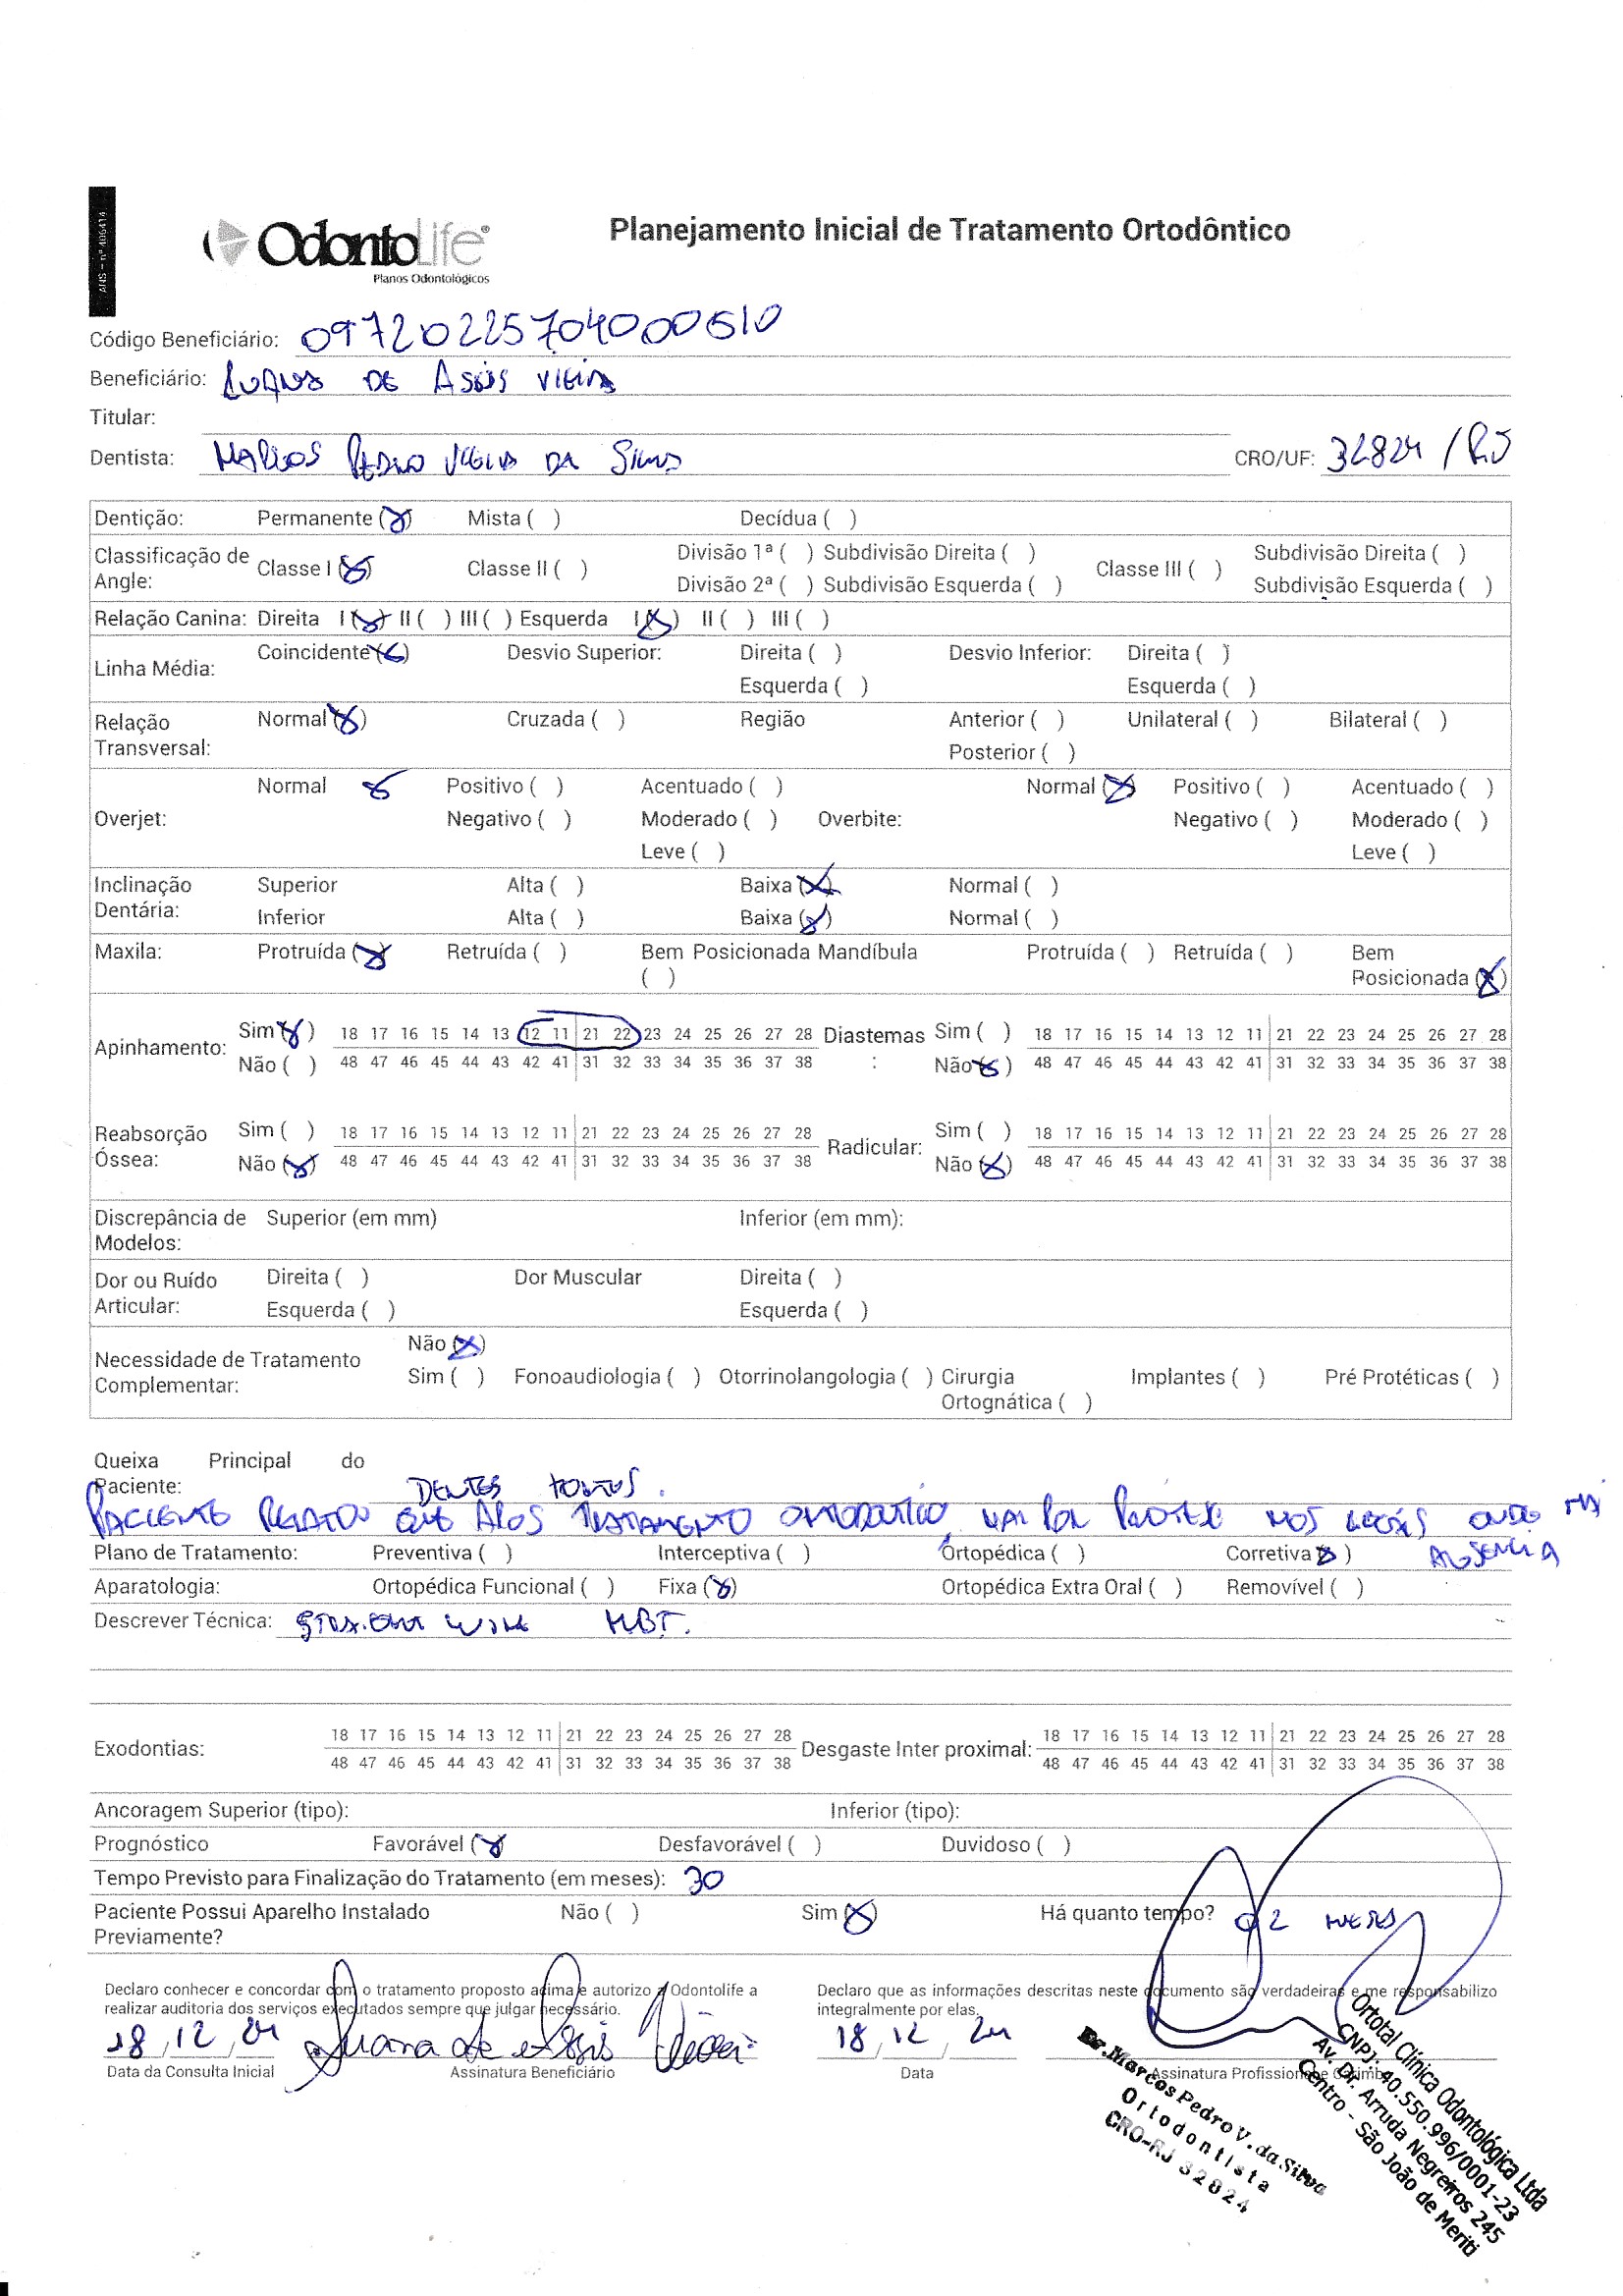 ANS - nº 406414
OdontoLife®
Planos Odontológicos
Planejamento Inicial de Tratamento Ortodôntico
Código Beneficiário: 09720225704000610
Beneficiário: Luana de Assis Vieira
Titular:
Dentista: Marcos Pedro Vieira da Silva CRO/UF: 32824 / RJ
Dentição: Permanente (X) Mista ( ) Decídua ( )
Classificação de Angle: Classe I (X) Classe II ( ) Divisão 1ª ( ) Subdivisão Direita ( ) Classe III ( ) Subdivisão Direita ( )
Divisão 2ª ( ) Subdivisão Esquerda ( ) Subdivisão Esquerda ( )
Relação Canina: Direita I (X) II ( ) III ( ) Esquerda I (X) II ( ) III ( )
Linha Média: Coincidente (X) Desvio Superior: Direita ( ) Desvio Inferior: Direita ( )
Esquerda ( ) Esquerda ( )
Relação Transversal: Normal (X) Cruzada ( ) Região Anterior ( ) Unilateral ( ) Bilateral ( )
Posterior ( )
Overjet: Normal X Positivo ( ) Acentuado ( ) Overbite: Normal (X) Positivo ( ) Acentuado ( )
Negativo ( ) Moderado ( ) Negativo ( ) Moderado ( )
Leve ( ) Leve ( )
Inclinação Dentária: Superior Alta ( ) Baixa (X) Normal ( )
Inferior Alta ( ) Baixa (X) Normal ( )
Maxila: Protruída (X) Retruída ( ) Bem Posicionada ( ) Mandíbula Protruída ( ) Retruída ( ) Bem Posicionada (X)
Apinhamento: Sim (X) 18 17 16 15 14 13 12 11 21 22 23 24 25 26 27 28 Diastemas: Sim ( ) 18 17 16 15 14 13 12 11 21 22 23 24 25 26 27 28
Não ( ) 48 47 46 45 44 43 42 41 31 32 33 34 35 36 37 38 Não (X) 48 47 46 45 44 43 42 41 31 32 33 34 35 36 37 38
Reabsorção Óssea: Sim ( ) 18 17 16 15 14 13 12 11 21 22 23 24 25 26 27 28 Radicular: Sim ( ) 18 17 16 15 14 13 12 11 21 22 23 24 25 26 27 28
Não (X) 48 47 46 45 44 43 42 41 31 32 33 34 35 36 37 38 Não (X) 48 47 46 45 44 43 42 41 31 32 33 34 35 36 37 38
Discrepância de Modelos: Superior (em mm) Inferior (em mm):
Dor ou Ruído Articular: Direita ( ) Dor Muscular Direita ( )
Esquerda ( ) Esquerda ( )
Necessidade de Tratamento Complementar: Não (X)
Sim ( ) Fonoaudiologia ( ) Otorrinolangologia ( ) Cirurgia Ortognática ( ) Implantes ( ) Pré Protéticas ( )
Queixa Principal do Paciente: DENTES TORTOS.
PACIENTE RELATOU QUE APOS TRATAMENTO ORTODONTICO, VAI POR PROTESE NOS ONDE HÁ AUSENCIA
Plano de Tratamento: Preventiva ( ) Interceptiva ( ) Ortopédica ( ) Corretiva (X)
Aparatologia: Ortopédica Funcional ( ) Fixa (X) Ortopédica Extra Oral ( ) Removível ( )
Descrever Técnica: MBT.
Exodontias: 18 17 16 15 14 13 12 11 21 22 23 24 25 26 27 28 Desgaste Inter proximal: 18 17 16 15 14 13 12 11 21 22 23 24 25 26 27 28
48 47 46 45 44 43 42 41 31 32 33 34 35 36 37 38 48 47 46 45 44 43 42 41 31 32 33 34 35 36 37 38
Ancoragem Superior (tipo): Inferior (tipo):
Prognóstico Favorável (X) Desfavorável ( ) Duvidoso ( )
Tempo Previsto para Finalização do Tratamento (em meses): 30
Paciente Possui Aparelho Instalado Previamente? Não ( ) Sim (X) Há quanto tempo? 02 MESES
Declaro conhecer e concordar com o tratamento proposto acima e autorizo a Odontolife a
realizar auditoria dos serviços executados sempre que julgar necessário.
Declaro que as informações descritas neste documento são verdadeiras e me responsabilizo
integralmente por elas.
18/12/24 Luana de Assis Vieira 18/12/24
Data da Consulta Inicial Assinatura Beneficiário Data Assinatura Profissional e Carimbo
Dr. Marcos Pedro V. da Silva
Ortodontista
CRO-RJ 32824
Ortotal Clínica Odontológica Ltda
CNPJ: 40.550.996/0001-23
Av. Dr. Arruda Negreiros 245
Centro - São João de Meriti